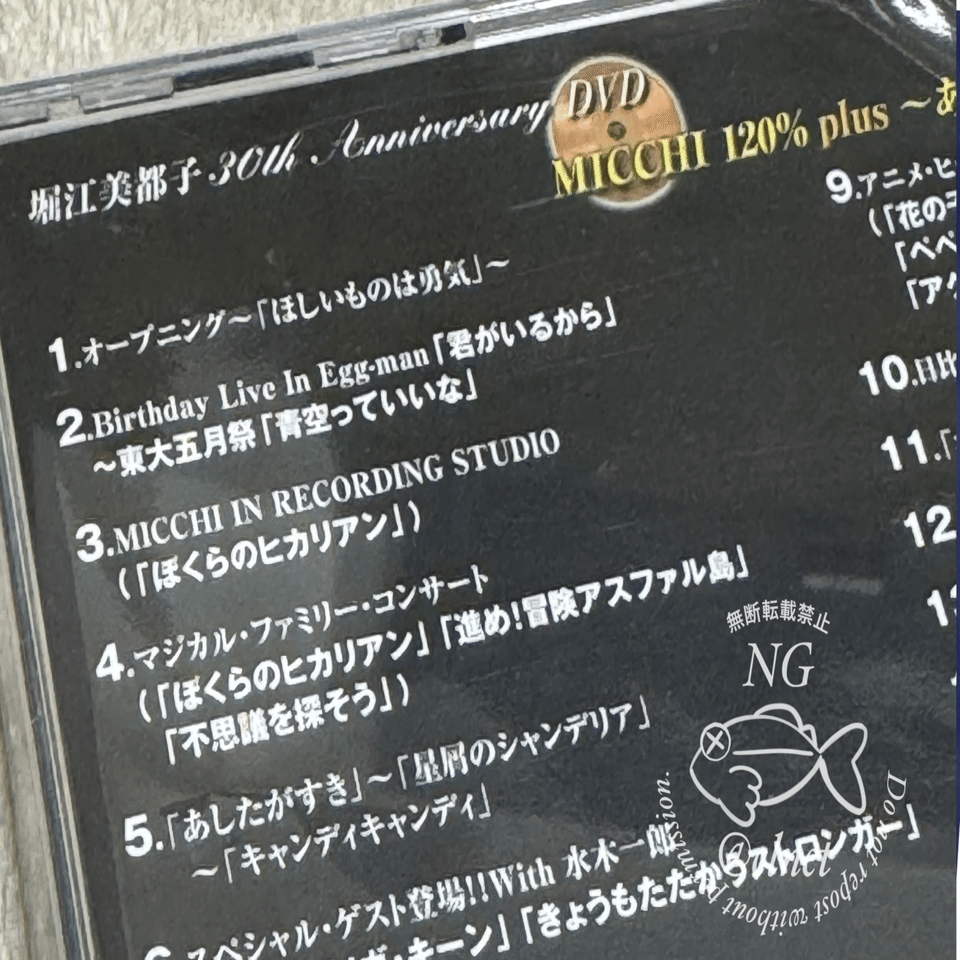 堀江美都子 30th Anniversary DVD
MICCHI 120% plus ～あ
1.オープニング～「ほしいものは勇気」～
2.Birthday Live In Egg-man「君がいるから」
～東大五月祭「青空っていいな」
3.MICCHI IN RECORDING STUDIO
(「ぼくらのヒカリアン」)
4.マジカル・ファミリー・コンサート
(「ぼくらのヒカリアン」「進め!冒険アスファル島」
「不思議を探そう」)
5.「あしたがすき」～「星屑のシャンデリア」
～「キャンディキャンディ」
スペシャル・ゲスト登場!!With 水木一郎
・キーン」「きょうもたたかうストロンガー」
9.アニメ・ヒ
(「花の子
「ペペ
「アク
10.日比
11.「
12
無断転載禁止
NG
Do not repost without permission.